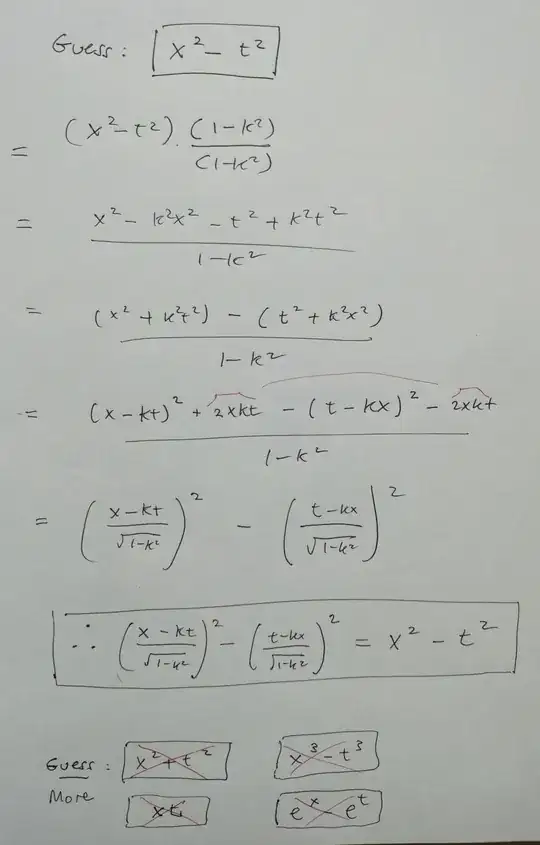 Guess : x² − t²
= (x² − t²) . (1 − k²) / (1 − k²)
= x² − k²x² − t² + k²t² / 1 − k²
= (x² + k²t²) − (t² + k²x²) / 1 − k²
= (x − kt)² + 2xkt − (t − kx)² − 2xkt / 1 − k²
= ( x − kt / √1−k² )² − ( t − kx / √1−k² )²
∴ ( x − kt / √1−k² )² − ( t − kx / √1−k² )² = x² − t²
Guess : x² + t² x³ − t³
More xt eˣ − eᵗ